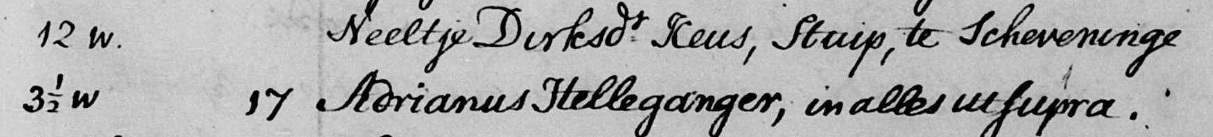 12 w. Neeltje Dirksdr Keus, Stuip, te Scheveninge
3½ w 17 Adrianus Helleganger, in alles ut supra.